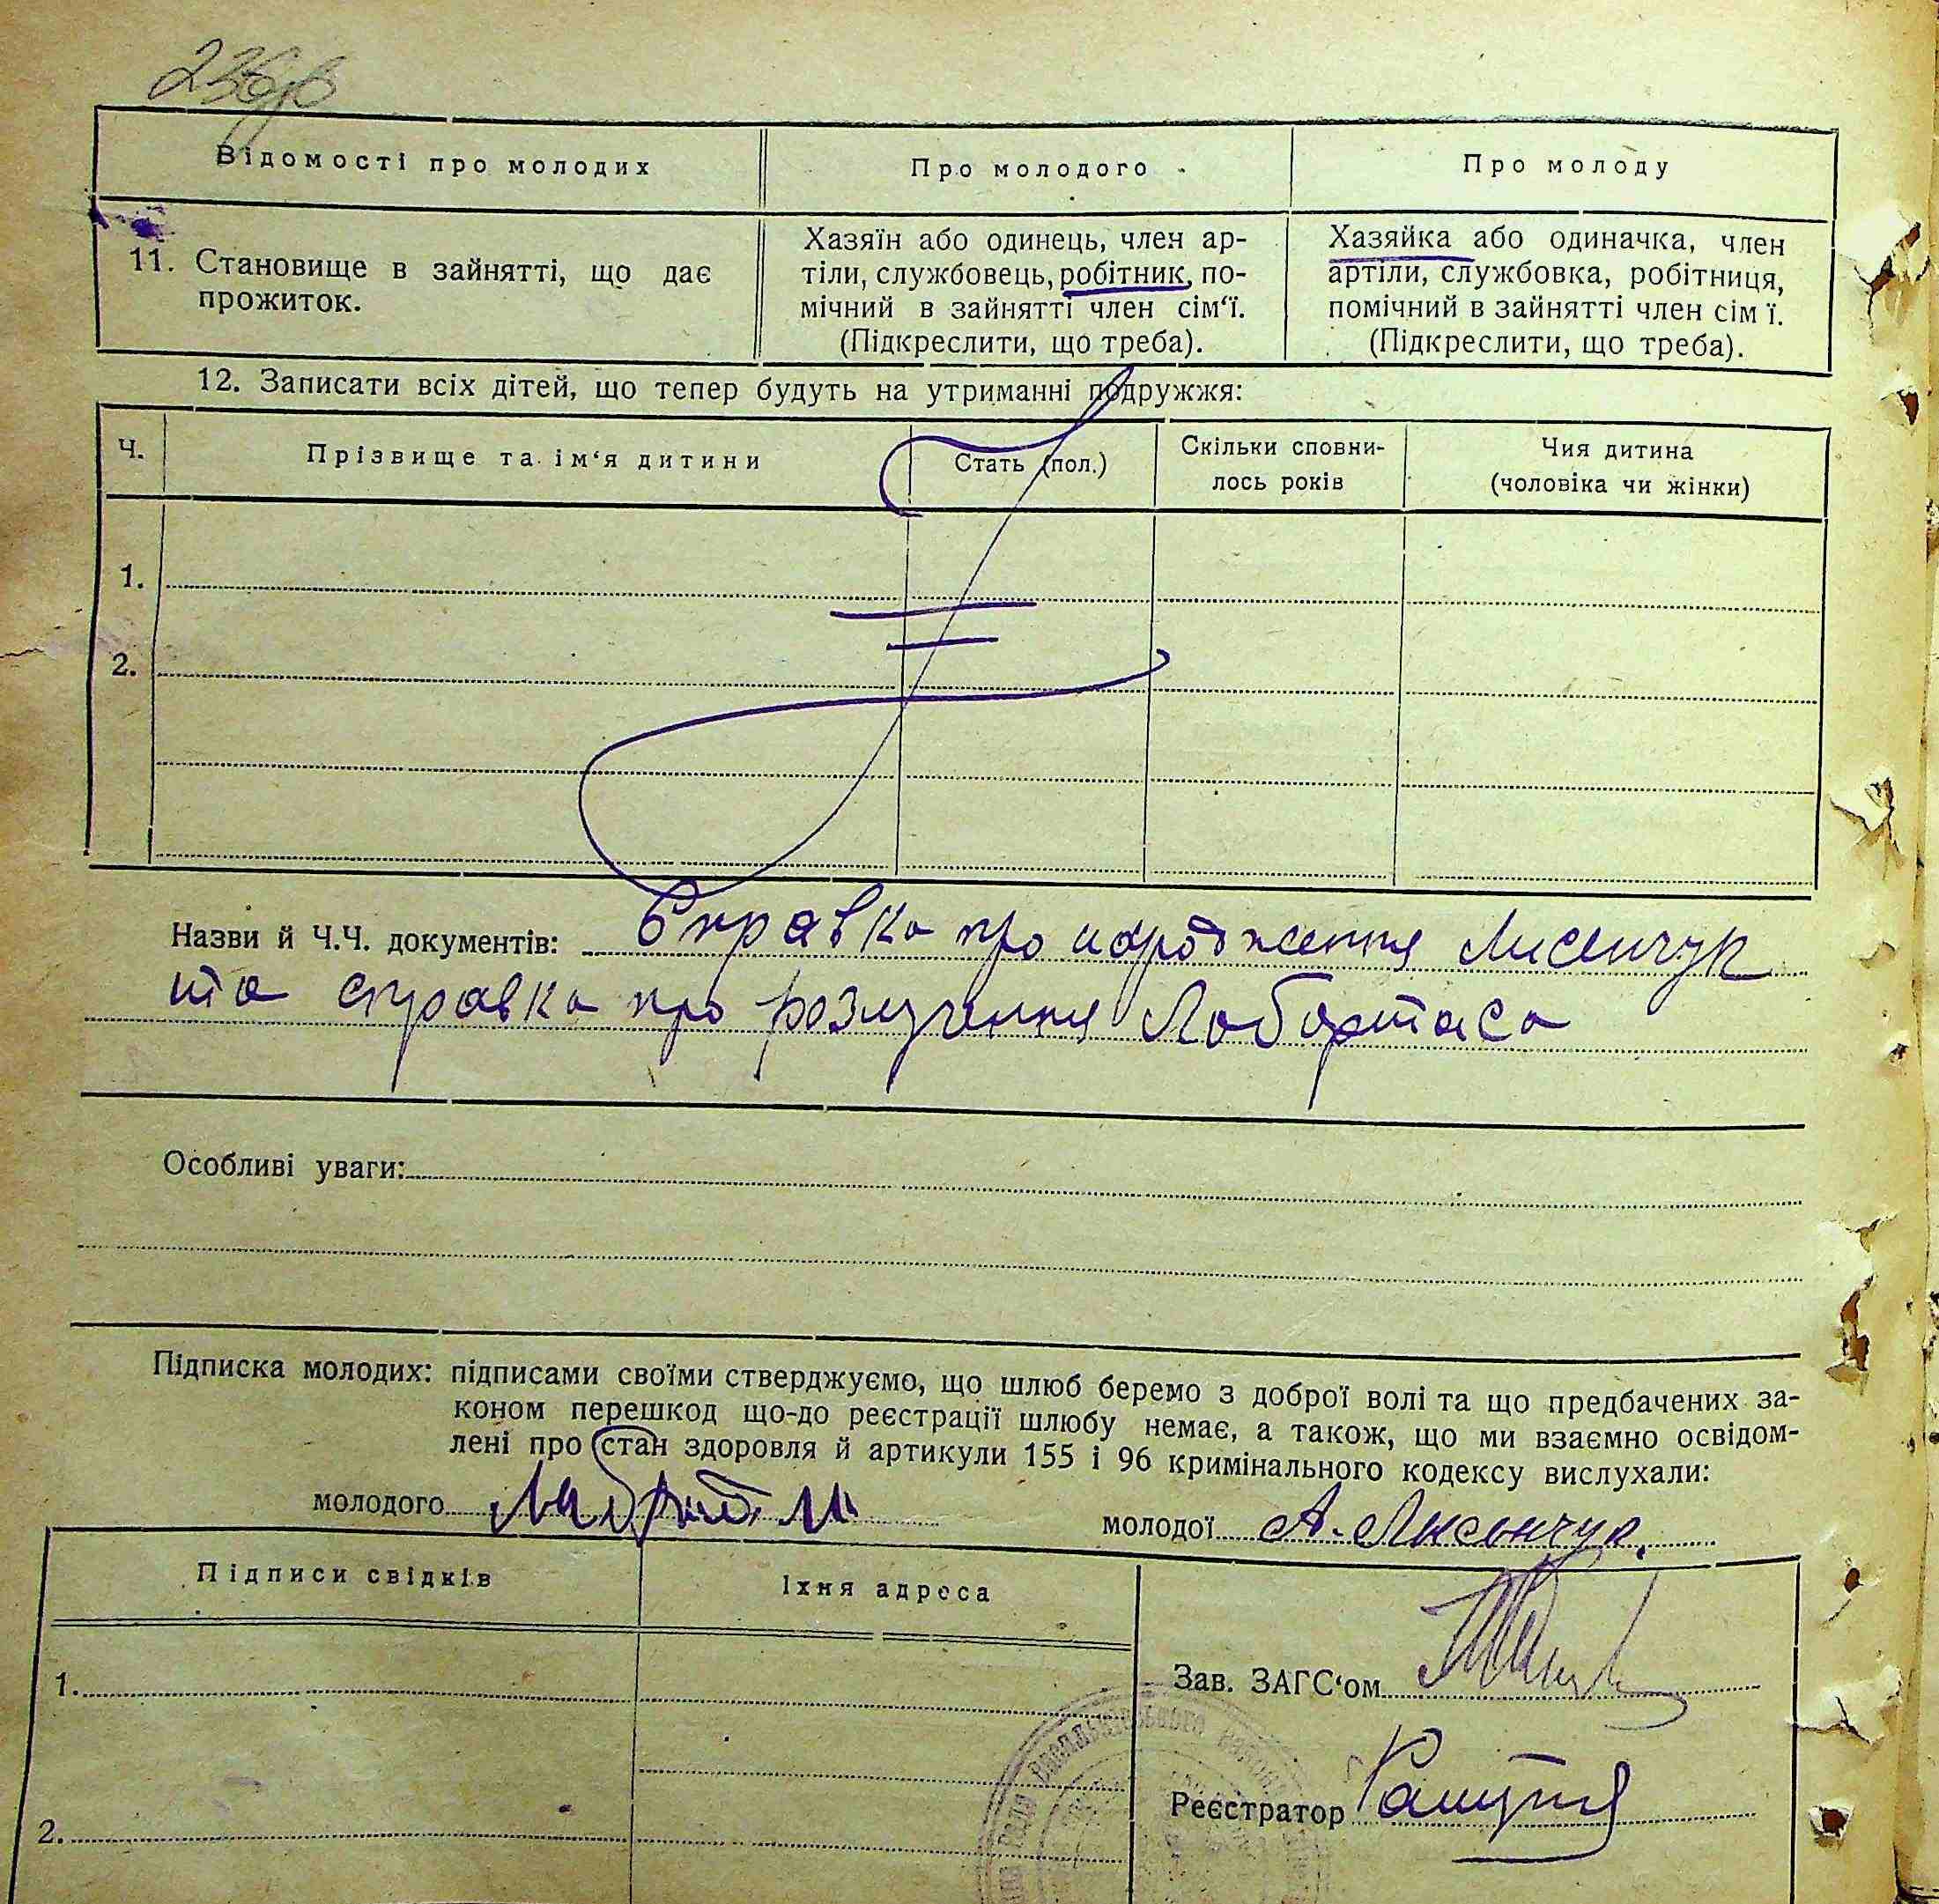 236
Відомості про молодих
Про молодого
Про молоду
11. Становище в зайнятті, що дає
прожиток.
Хазяїн або одинець, член ар-
тіли, службовець, робітник, по-
мічний в зайнятті член сім‘ї.
(Підкреслити, що треба).
Хазяйка або одиначка, член
артіли, службовка, робітниця,
помічний в зайнятті член сім ї.
(Підкреслити, що треба).
12. Записати всіх дітей, що тепер будуть на утриманні подружжя:
Ч.
Прізвище та ім‘я дитини
Стать (пол.)
Скільки сповни-
лось років
Чия дитина
(чоловіка чи жінки)
1.
2.
Назви й Ч.Ч. документів: Справка про народження Лисенчук
та справка про розлучення Лабартаса
Особливі уваги:
Підписка молодих: підписами своїми стверджуємо, що шлюб беремо з доброї волі та що предбачених за-
коном перешкод що-до реєстрації шлюбу немає, а також, що ми взаємно освідом-
лені про стан здоровля й артикули 155 і 96 кримінального кодексу вислухали:
молодого
молодої А. Лисенчук.
Підписи свідків
Їхня адреса
1.
2.
Зав. ЗАГС‘ом
Реєстратор